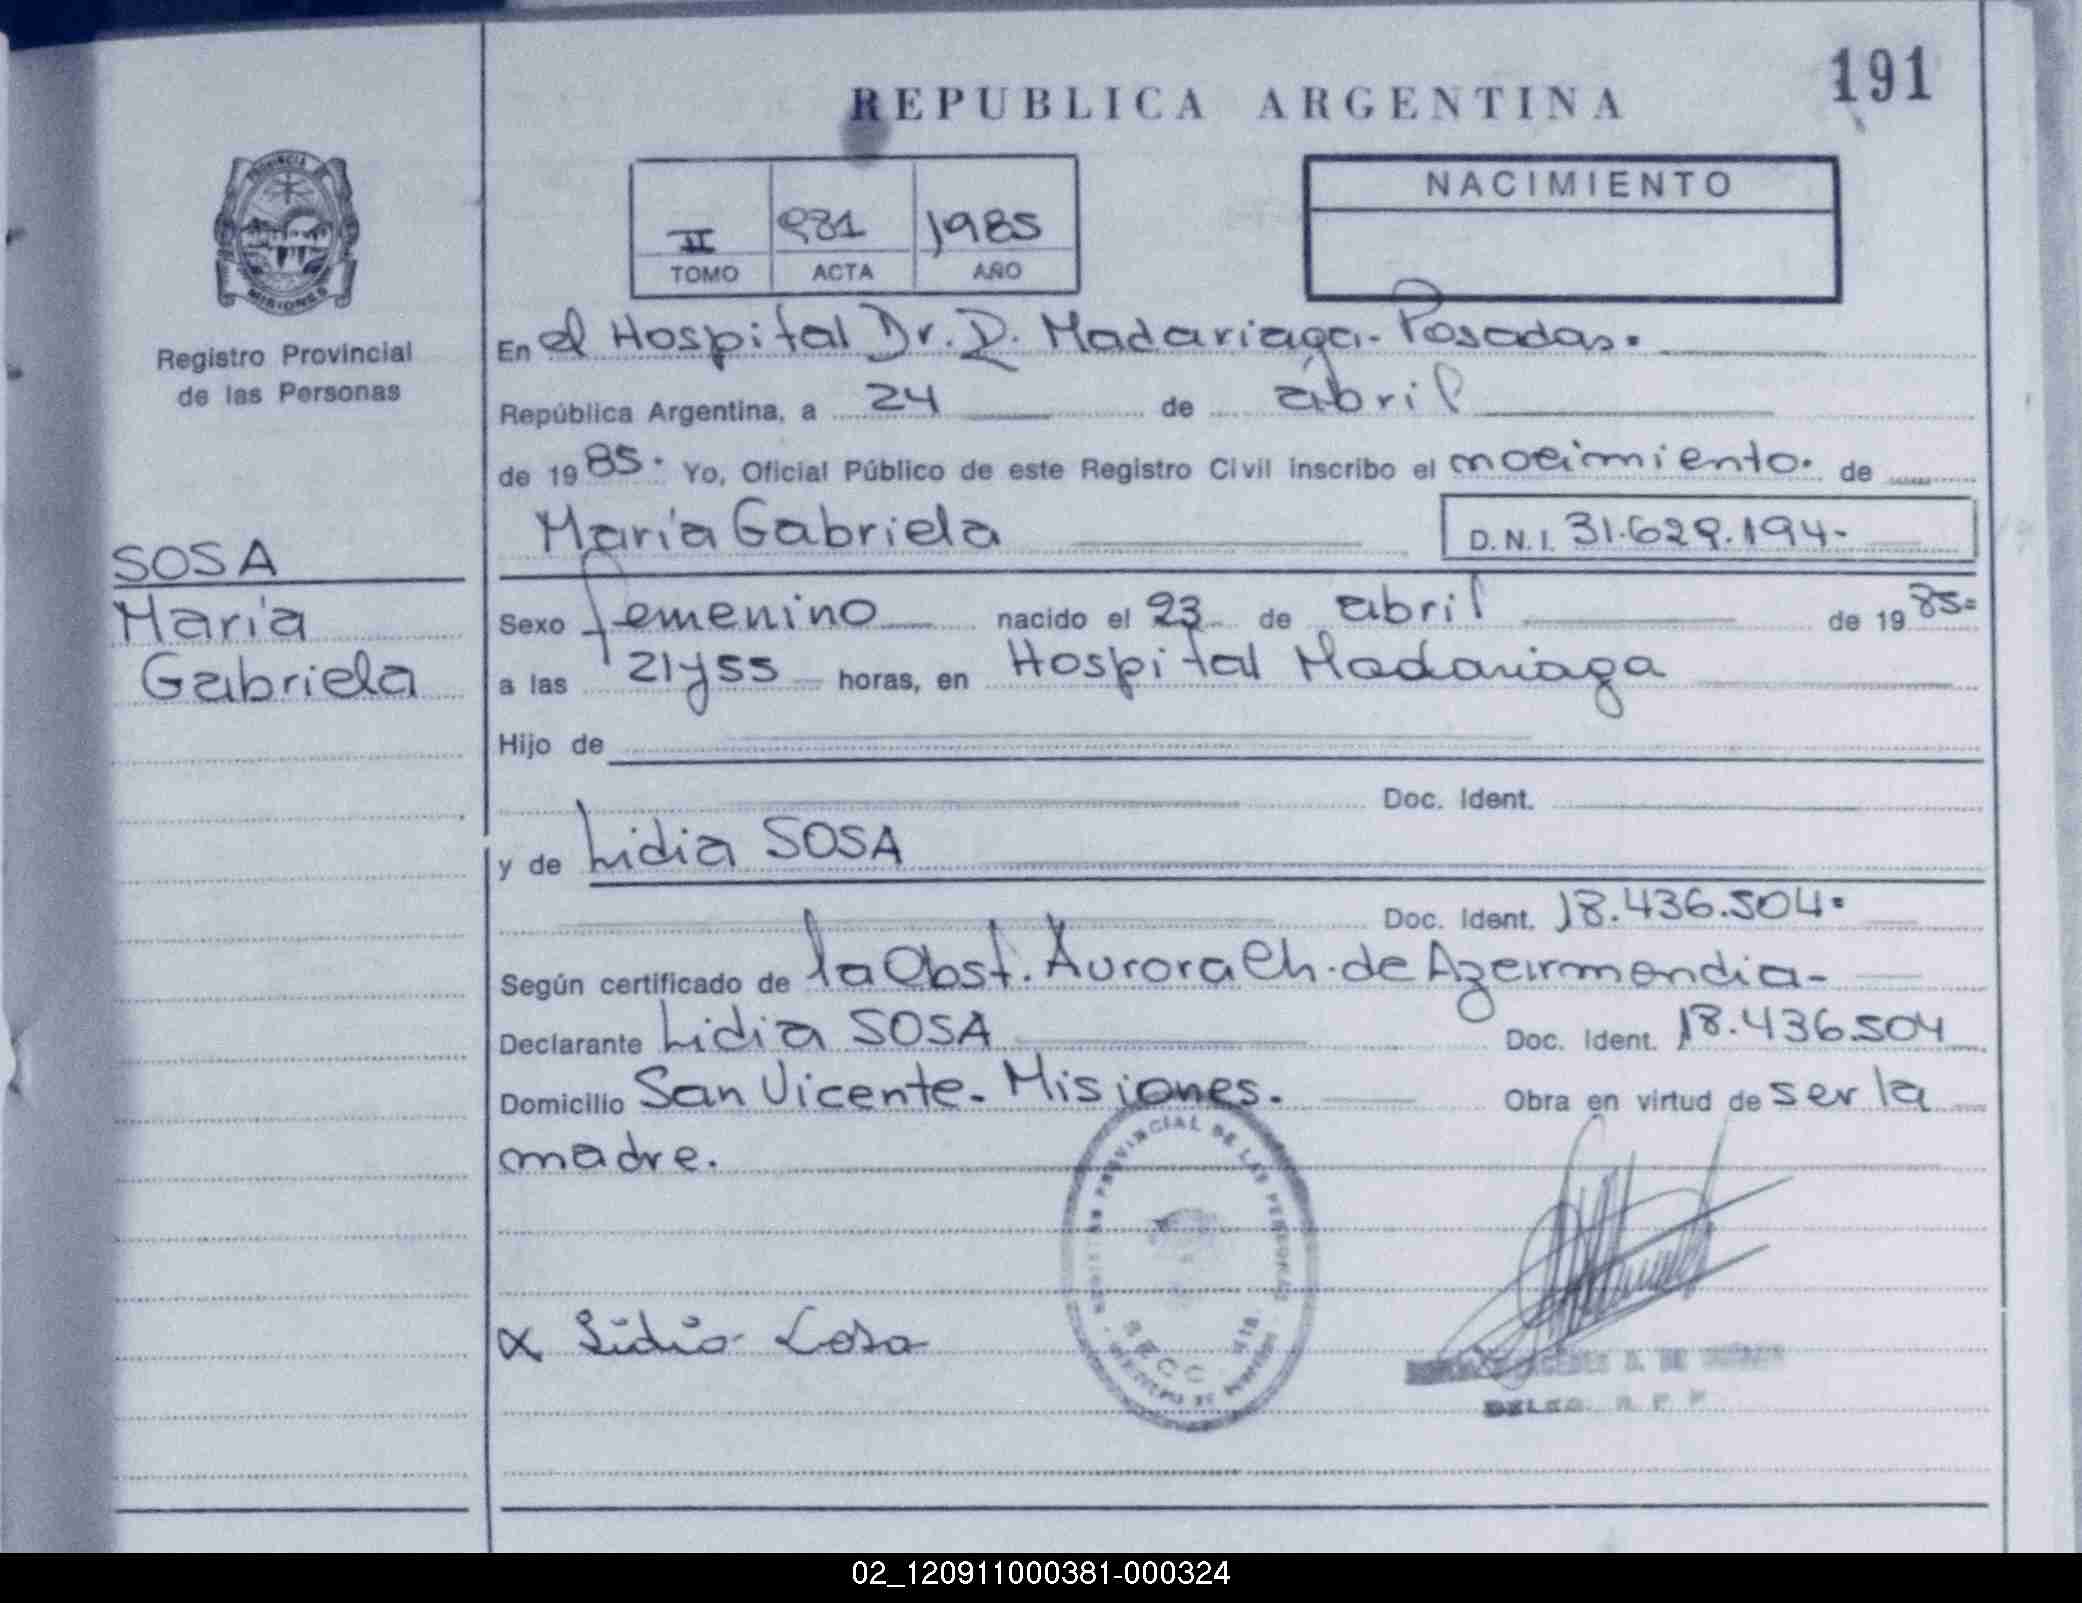 191
REPUBLICA ARGENTINA
PROVINCIA
MISIONES
Registro Provincial
de las Personas
II 981 1985
TOMO ACTA AÑO
NACIMIENTO
En el Hospital Dr. R. Madariaga - Posadas.
República Argentina, a 24 de abril
de 1985. Yo, Oficial Público de este Registro Civil inscribo el nacimiento. de
María Gabriela D.N.I. 31.629.194-
SOSA
María
Gabriela
Sexo femenino nacido el 23 de abril de 1985=
a las 21y55 horas, en Hospital Madariaga
Hijo de
Doc. Ident.
y de Lidia SOSA
Doc. Ident. 18.436.504.
Según certificado de la Obst. Aurora Ch. de
Declarante Lidia SOSA Doc. Ident. 18.436.504
Domicilio San Vicente. Misiones. Obra en virtud de ser la
madre.
PROVINCIAL DE LAS PERSONAS
SECC.
x Lidia Sosa
02_120911000381-000324